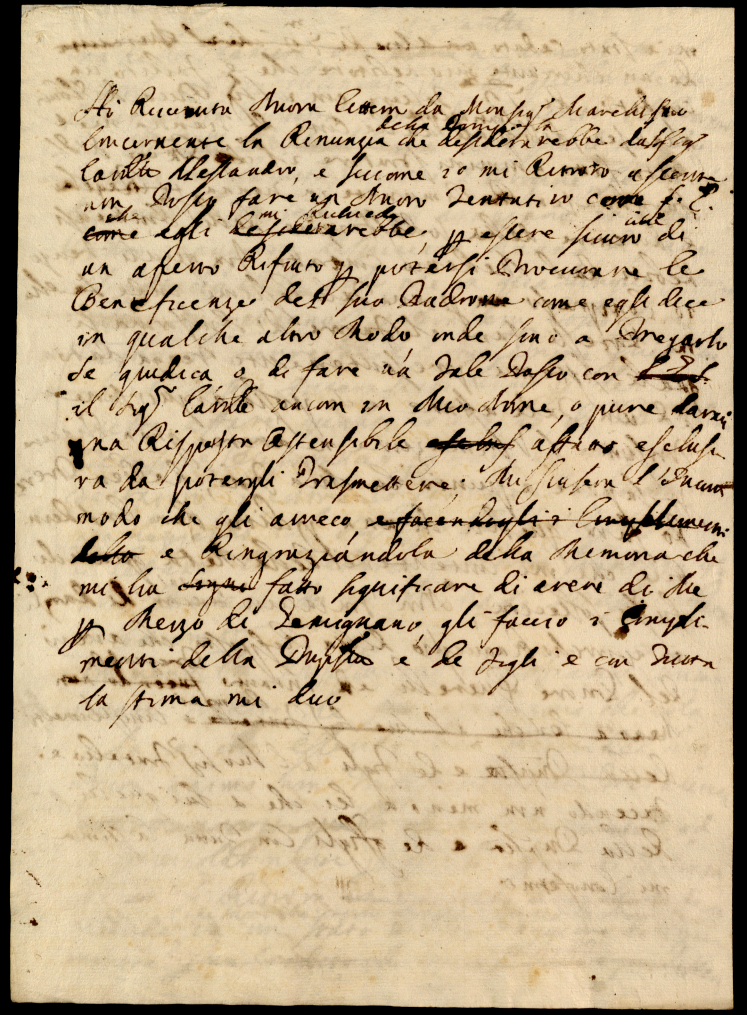 Hò Riceuuta Nuova lettera da Monsigr Marchesino
Concernente la Renunzia che desidererebbe dal Sigr
della
Cavlle Alessandro, e siccome io mi Ritrovo
non Posso fare un Nuovo Tentativo come
che mi Richiede
come egli desidererebbe, p essere sicuro di
un aperto Rifiuto p potersi Procurare le
Beneficenze del suo Padrone come egli dice
in qualche altro Modo, onde sono a Pregarlo
Se giudica o di fare un tale Passo con
il Sigr Cavlle ancora in Mio Nome, o pure darmi
una Risposta Ostensibile affatto esclusi-
va da potergli Trasmettere. Mi scusera l'Incom
modo che gli arreco e facendogli i Complimenti
della e Ringraziandola della Memoria che
mi ha fatto significare di avere di Me
p Mezzo di Temignano, gli faccio i Compli-
menti della e de Figli e con Tutta
la stima mi dico